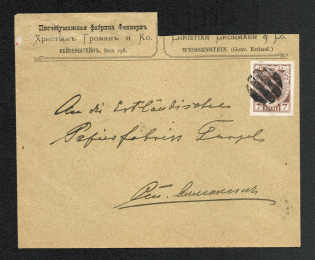 Писчебумажная фабрика Феннернъ
Христіанъ Громанъ и Ко.
ВЕЙСЕНШТЕЙНЪ, Эстл. губ.
CHRISTIAN GROHMANN & Co.
WEISSENSTEIN (Gouv. Estland.)
7 КОП 7
An die Estländische
Papierfabriks Turgel